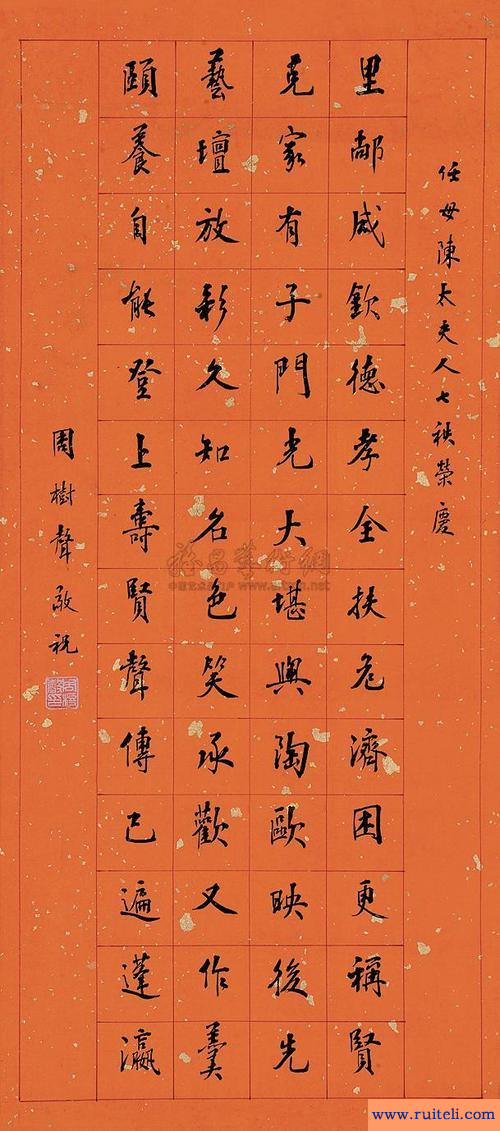 任母陳太夫人七秩榮慶
里咸欽德孝全扶危濟困更稱賢
克家有子門光大堪與陶歐映後先
藝壇放彩久知名色笑承歡又作羹
頤養自能登上壽賢聲傳已遍蓬瀛
周樹聲敬祝
www.ruiteli.com